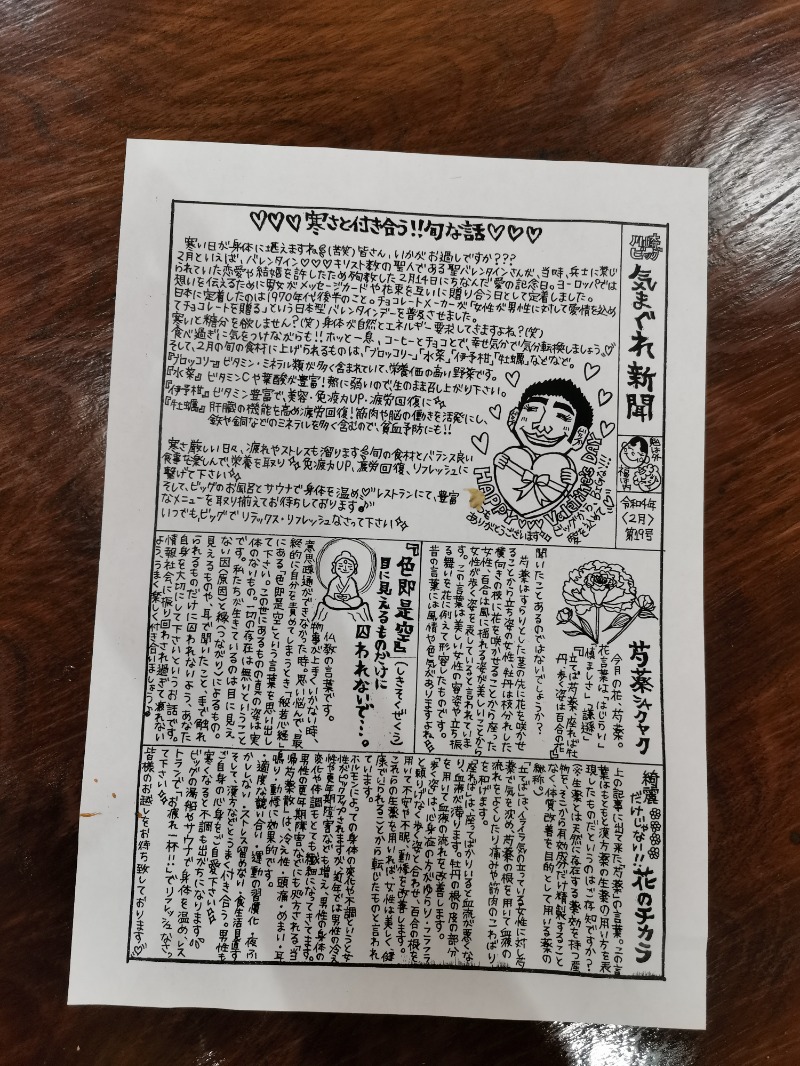 気まぐれ新聞
令和4年
〈2月〉
第19号
♡♡♡寒さと付き合う!!旬な話♡♡♡
寒い日が身体に堪えますね(苦笑)皆さん、いかがお過しですか???
2月といえば、バレンタイン♡♡♡キリスト教の聖人である聖バレンタインさんが、当時、兵士に禁じ
られていた恋愛や結婚を許したため殉教した2月14日にちなんだ愛の記念日。ヨーロッパでは
想いを伝えるために男女がメッセージカードや花束を互いに贈り合う日として定着しました。
日本に定着したのは1970年代後半のこと。チョコレートメーカーが「女性が男性に対して愛情を込め
てチョコレートを贈る」という日本型バレンタインデーを普及させました。
寒いと糖分を欲しませんか?(笑)身体が自然とエネルギー要求してきますよね?(笑)
食べ過ぎに気をつけながらも!!ホッと一息、コーヒーとチョコとで、幸せ気分で気分転換しましょう♡
そして、2月の旬の食材に上げられるものは、「ブロッコリー」「水菜」「伊予柑」「牡蠣」などなど。
『ブロッコリー』ビタミン・ミネラル類が多く含まれていて、栄養価の高い野菜です。
『水菜』ビタミンCや葉酸が豊富!熱に弱いので、生のまま召し上がり下さい。
『伊予柑』ビタミン豊富で、美容・免疫力UP・疲労回復に
『牡蠣』肝臓の機能を高め疲労回復!筋肉や脳の働きを活発にし、
鉄や銅などのミネラルを多く含むので、貧血予防にも!!
寒さ厳しい日々、疲れやストレスも溜ります旬の食材とバランス良い
食事を楽しんで、栄養を取り免疫力UP、疲労回復、リフレッシュに
繋げて下さい
そして、ビッグのお風呂とサウナで身体を温め♡レストランにて、豊富
なメニューを取り揃えてお待ちしております
いつでも、ビッグでリラックス・リフレッシュなさって下さい
HAPPY♡♡♡Valentine's DAY
ビッグから
愛を込めて
ありがとうございます
芍薬 シャクヤク
今月の花、芍薬。
花言葉は「はじらい」
「慎ましさ」「謙遜」
『立てば芍薬、座れば牡
丹、歩く姿は百合の花』
聞いたことあるのではないでしょうか?
芍薬はすらりとした茎の先に花を咲かせ
ることから立ち姿の女性、牡丹は枝分れした
横向きの枝に花を咲かせることから座った
女性、百合は風に揺れる姿が美しいことから
女性が歩く姿を表していると言われていま
す。この言葉は美しい女性の容姿や立ち振
る舞いを花に例えて形容したものです。
昔の言葉には風情や色気がありますよね
『色即是空』(しきそくぜくう)
目に見えるものだけに
囚われないで…。
仏教の言葉です。
物事が上手くいかない時、
意思疎通ができなかった時。思い悩んで、最
終的に自分を責めてしまうとき「般若心経」
にある「色即是空」という言葉を思い出し
て下さい。この世にあるもの真の姿は実
体のないもの。一切の存在は無いということ
です。私たちが生きているのは目に見え
ない因(原因)と縁(つながり)によるもの。
見えるものや、耳で聞いたこと、手で触れ
られるものだけに囚われないよう、あなた
自身を大切にして下さいというお話です。
情報社会に振り回され過ぎて疲れない
よう、うまく楽しく付き合いましょう
綺麗
だけじゃない!!花のチカラ
上の記事に出て来た『芍薬』の言葉。この言
葉はもともと漢方薬の生薬の用い方を表
現したものだというのはご存知ですか?
(※生薬とは天然に存在する薬効を持つ産
物を、そこから有効成分だけ精製すること
なく体質改善を目的として用いる薬の
総称。)
「立てば」は、イライラ気の立っている女性に対し芍
薬で気を沈め、芍薬の根を用いて血液の
流れをよくしたり痛みや筋肉のこわばり
を和げます。
「座れば」は、座ってばかりいると血流が悪くな
り、血液が滞ります。牡丹の根の皮の部分
を用いて血液の流れを改善します。
「歩く姿」は、心身症の方がゆらり・フラフラ
と頼りげなく歩く姿と合わせ、百合の根を
用いて不安や不眠、動悸を改善します。
これらの生薬を用いれば、女性は美しく健
康でいられることから転じたものと言われ
ています。
ホルモンによっての身体の変化や不調というと女
性がピックアップされますが、近年では男性の冷え
性や更年期障害なども増え、男性の身体の
変化や体調もとても繊細になってきてます。
男性の更年期障害などにも処方される「当
帰芍薬散」は、冷え性・頭痛・めまい・耳
鳴り・動悸に効果的です。
・適度な競い合い・運動の習慣化・夜ふ
かししない・ストレス留めない・食生活見直す
そして、漢方などとうまく付き合う。男性も
ご自身の心身をご自愛下さい
寒くなると不調も出がちになります。
ビッグの湯船やサウナで身体を温め、レス
トランで「お疲れ一杯!!」でリフレッシュなさっ
て下さい
皆様のお越しをお待ち致しております♡